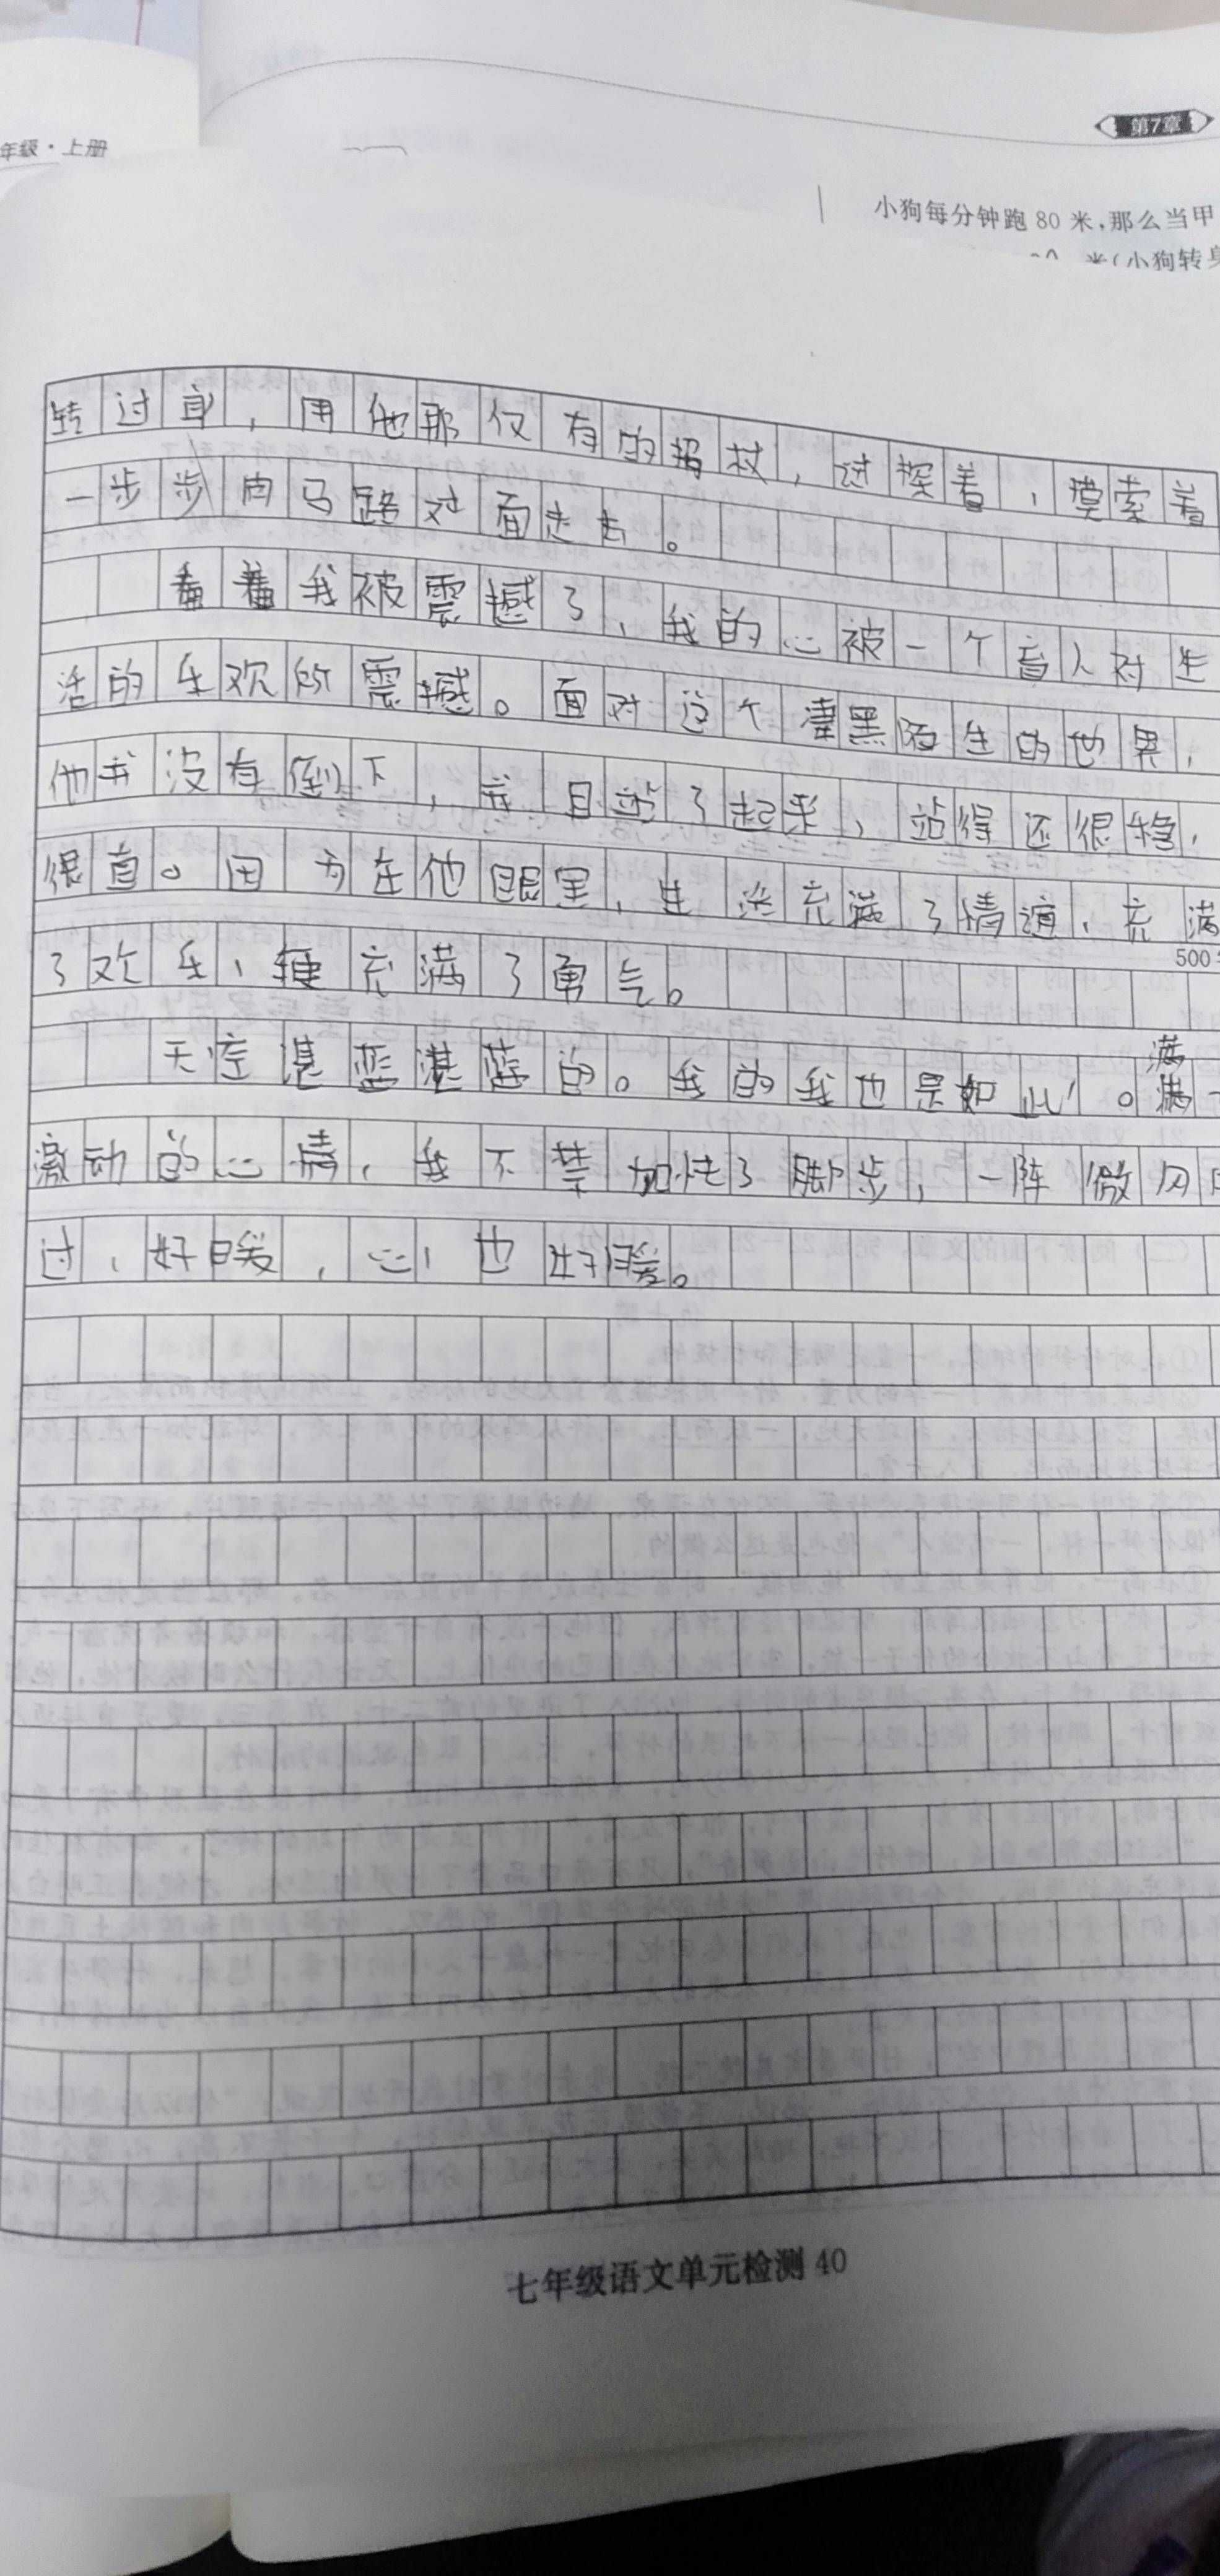 第7章
年级·上册
小狗每分钟跑80米,那么当甲
米(小狗转身
转过身,用他那仅有的拐杖,过探着,摸索着
一步步向马路对面走去。
看着我被震撼了,我的心被一个盲人对生
活的乐欢所震撼。面对这个漆黑陌生的世界,
他并没有倒下,并且站了起来,站得还很稳,
很直。因为在他眼里,生活充满了情趣,充满
500
了欢乐,更充满了勇气。
天空湛蓝湛蓝的。我的我也是如此。满满一
激动的心情,我不禁加快了脚步,一阵微风
过,好暖,心也好暖。
七年级语文单元检测40